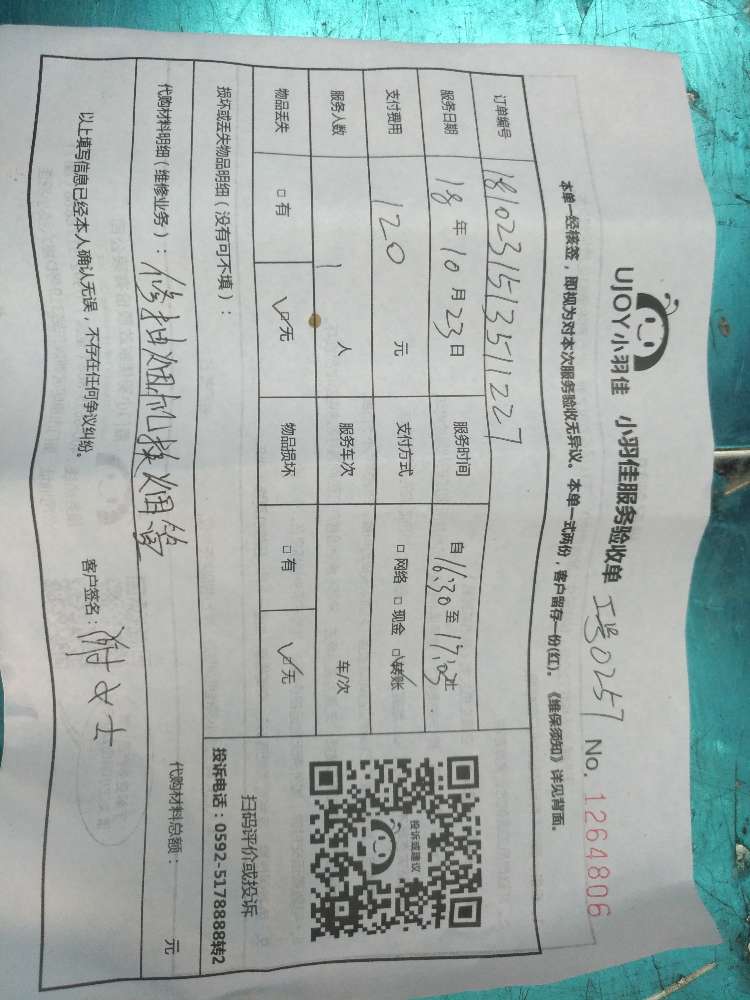 UJOY小羽佳 小羽佳服务验收单 工号0257 No. 1264806
本单一经核签，即视为对本次服务验收无异议。本单一式两份，客户留存一份(红)。《维保须知》详见背面。
订单编号 1810231513511227
服务日期 18年10月23日 服务时间 自16:30至17:03止
支付费用 120 元 支付方式 □网络 □现金 ☑转账
服务人数 1 人 服务车次 车/次
物品丢失 □有 ☑无 物品损坏 □有 ☑无
投诉或建议
扫码评价或投诉
投诉电话：0592-5178888转2
损坏或丢失物品明细（没有可不填）：
代购材料明细（维修业务）：修抽烟机换烟管 代购材料总额： 元
以上填写信息已经本人确认无误，不存在任何争议纠纷。 客户签名： 女士